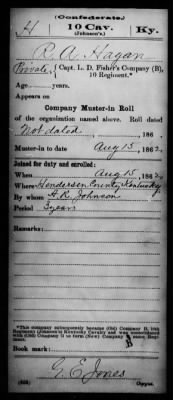 (Confederate.)
H 10 Cav. Ky.
(Johnson's.)
R. A. Hagan
Private, Capt. L. D. Fisher's Company (B),
10 Regiment.*
Age years.
Appears on
Company Muster-in Roll
of the organization named above. Roll dated
Not dated, 186 .
Muster-in to date Aug 15, 1862.
Joined for duty and enrolled:
When Aug 15, 1862.
Where Henderson County, Kentucky
By whom A. R. Johnson
Period 3 years
Remarks:
*This company subsequently became (Old) Company B, 10th
Regiment (Johnson's) Kentucky Cavalry and was consolidated
with (Old) Company to form (New) Company B same Regi-
ment.
Book mark:
G. E. Jones
(635) Copyist.